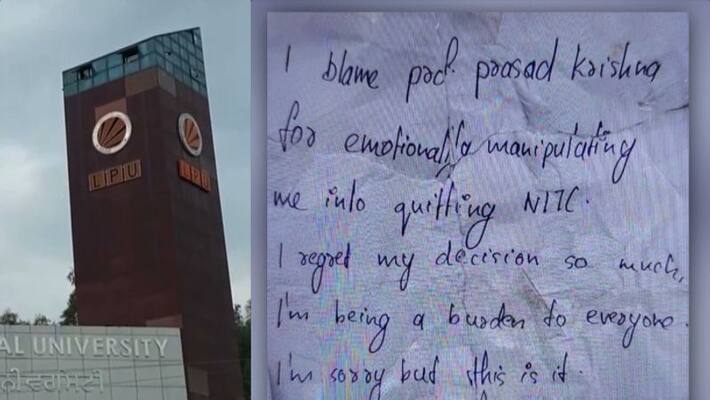 LPU
LPU
AL UNIVERSITY
I blame prof. prasad Krishna
for emotionally manipulating
me into quitting NITC.
I regret my decision so much.
I'm being a burden to everyone.
I'm sorry but this is it.